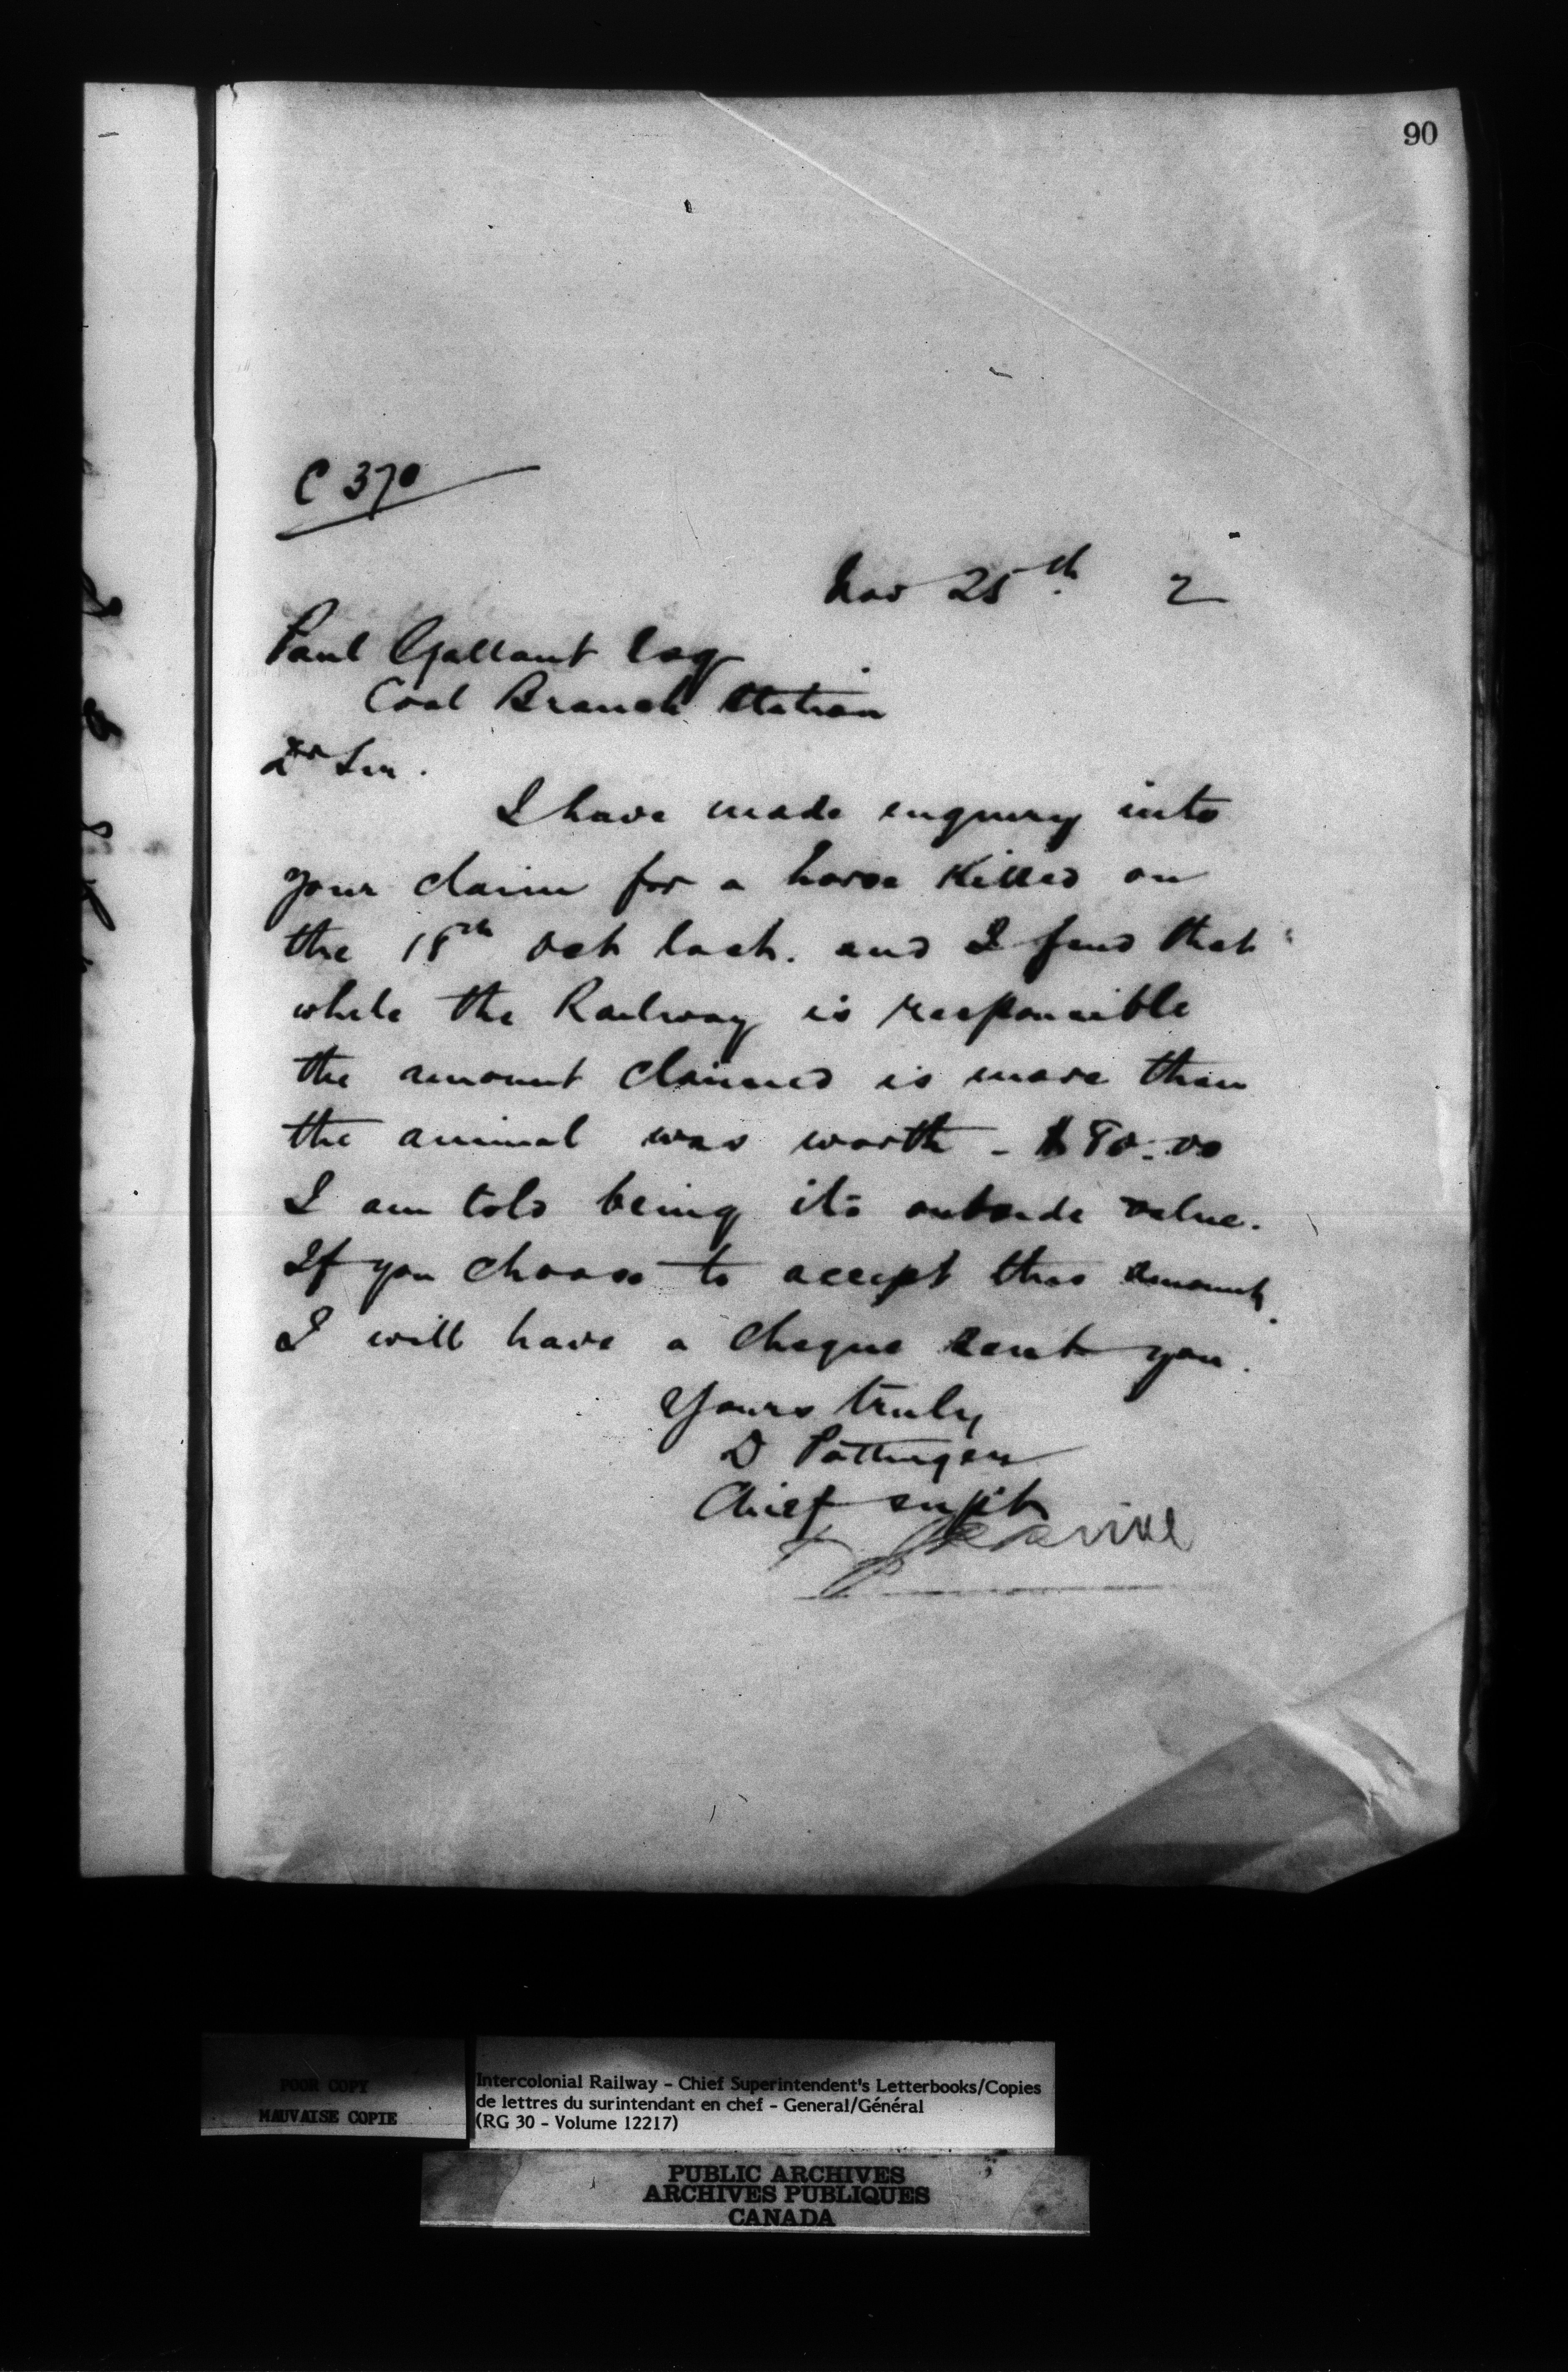 90
C 370
Nov 25th. 2
Paul Gallant Esq
Coal Branch Station
Dr Sir.
I have made enquiry into
your claim for a horse killed on
the 18th Oct last. and I find that
while the Railway is responsible
the amount claimed is more than
the animal was worth - $80.00
I am told being its outside value.
If you choose to accept this amount.
I will have a cheque sent you.
Yours truly
D Pottinger
Chief supt
POOR COPY
MAUVAISE COPIE
Intercolonial Railway - Chief Superintendent's Letterbooks/Copies
de lettres du surintendant en chef - General/Général
(RG 30 - Volume 12217)
PUBLIC ARCHIVES
ARCHIVES PUBLIQUES
CANADA